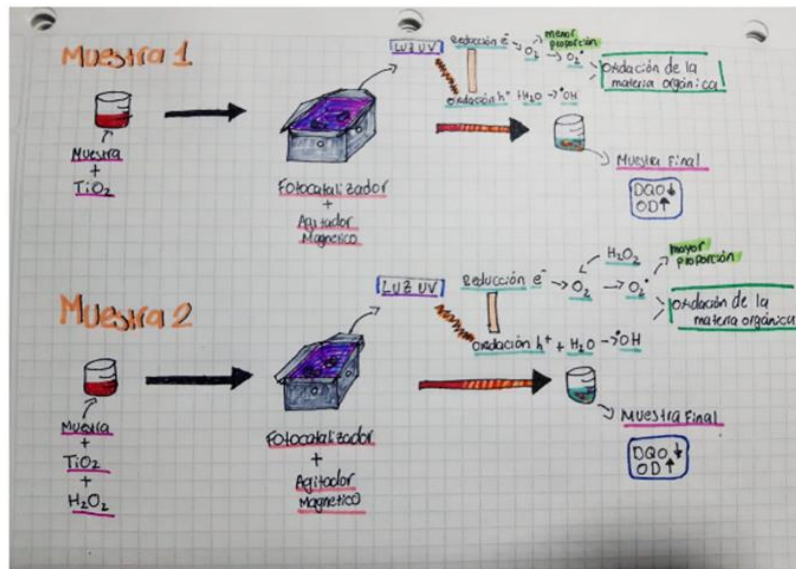 Muestra 1
Muestra
+
TiO₂
Fotocatalizador
+
Agitador
Magnetico
LUZ UV
Reducción e⁻ → O₂ → O₂•
menor
proporción
Oxidación h⁺ + H₂O → •OH
Oxidación de la
materia orgánica
Muestra Final
DQO ↓
OD ↑
Muestra 2
Muestra
+
TiO₂
+
H₂O₂
Fotocatalizador
+
Agitador
Magnetico
LUZ UV
Reducción e⁻ → O₂ → O₂•
H₂O₂
mayor
proporción
Oxidación h⁺ + H₂O → •OH
Oxidación de la
materia orgánica
Muestra Final
DQO ↓
OD ↑